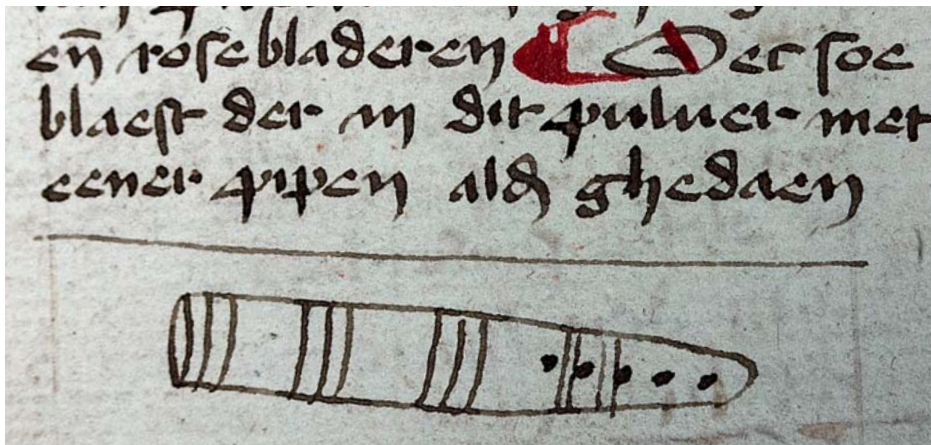 en̄ rosebladeren Oec soe
blaest der in dit puluer met
eener pipen ald ghedaen